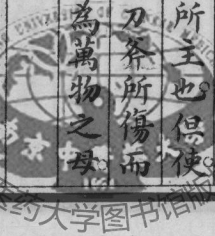 所主也俱使
刀斧所傷而
為萬物之母
药大学图书馆